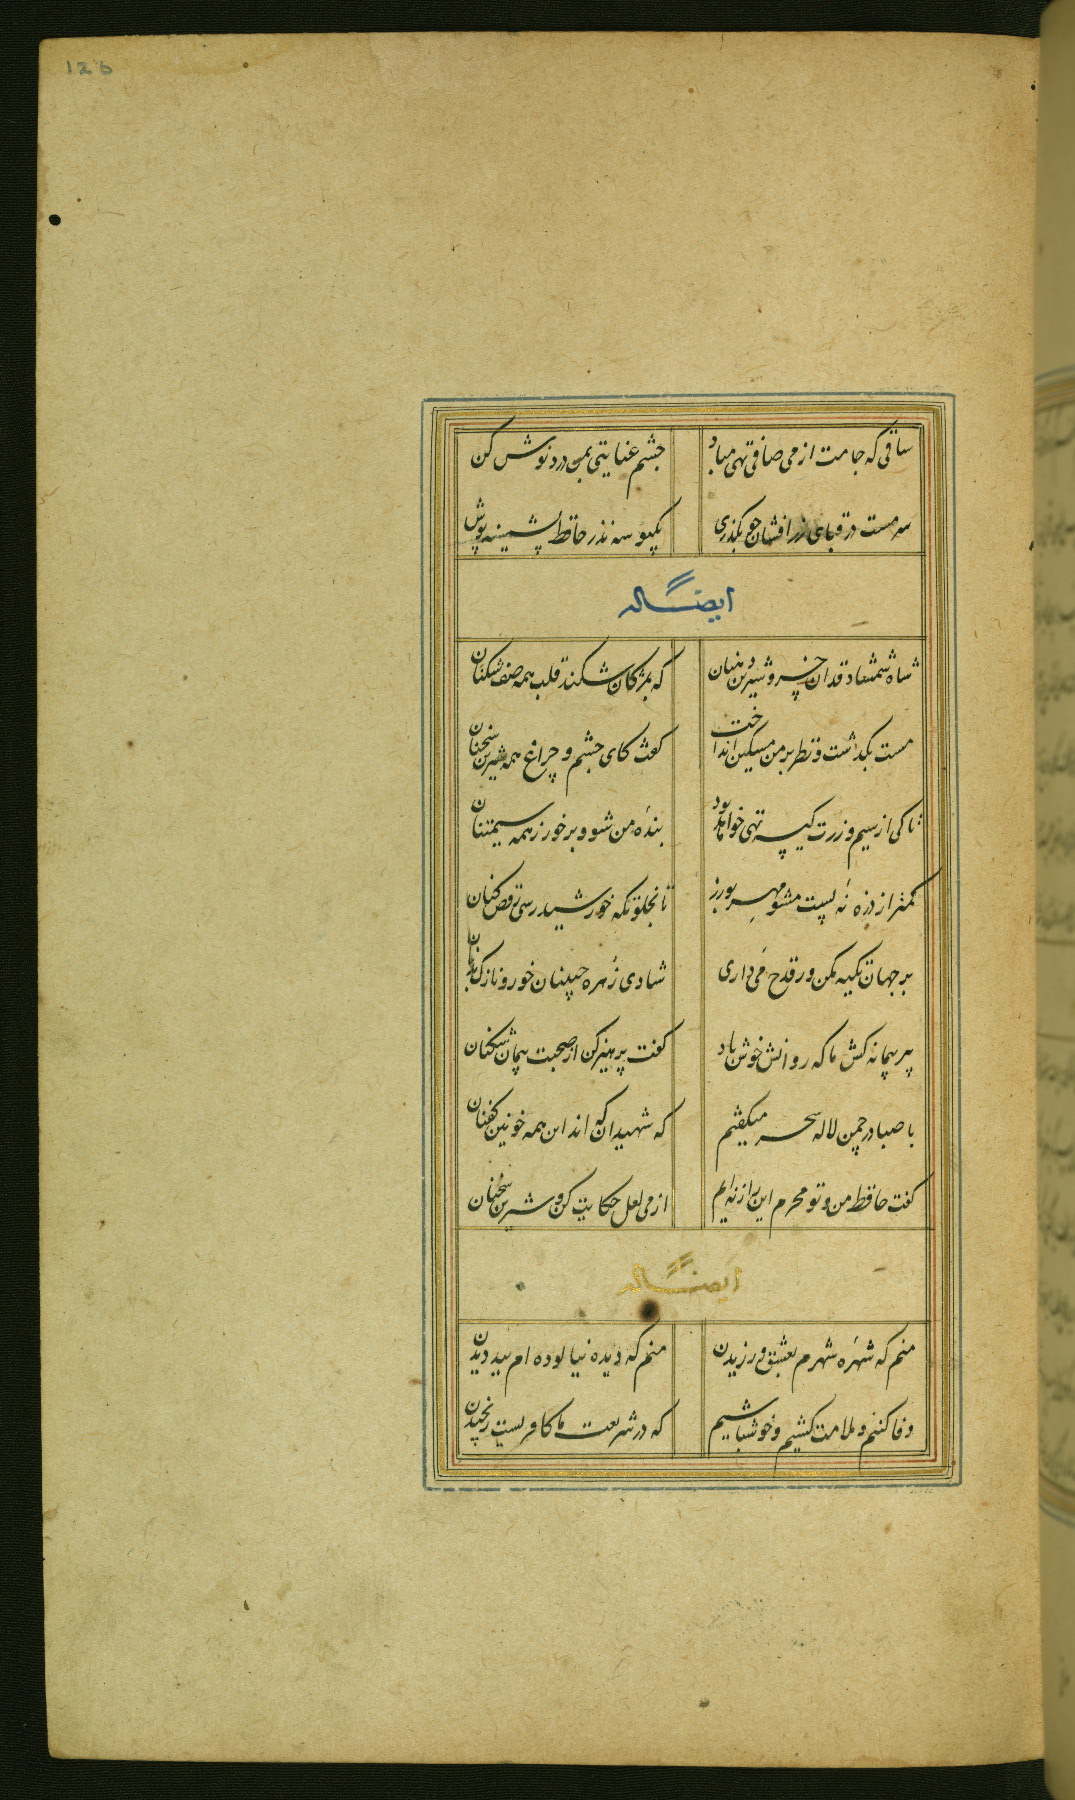 126
ساقی که جامت از می صافی تهی مباد چشم عنایتی بمن دردنوش کن
سرمست در قبای زرافشان چو بگذری یکبوسه نذر حافظ پشمینه پوش
ایضاً له
شاه شمشاد قدان خسرو شیرین دهنان که بمژگان شکند قلب همه صف شکنان
مست بگذشت و نظر بر من مسکین انداخت گفت کای چشم و چراغ همه شیرین سخنان
تا کی از سیم و زرت کیسه تهی خواهد بود بندۀ من شو و برخور ز همه سیمتنان
کمتر از ذره نۀ پست مشو مهر بورز تا بخلوتگه خورشید رسی رقص کنان
بر جهان تکیه مکن ور قدح می داری شادی زهره جبینان خور و نازک بدنان
پیر پیمانه کش ما که روانش خوش باد گفت پرهیز کن از صحبت پیمان شکنان
با صبا در چمن لاله سحر میگفتم که شهیدان که اند این همه خونین کفنان
گفت حافظ من و تو محرم این راز نه ایم از می لعل حکایت کن و شیرین سخنان
ایضاً له
منم که شهره شهرم بعشق ورزیدن منم که دیده نیالوده ام ببد دیدن
وفا کنیم و ملامت کشیم و خوش باشیم که در شریعت ما کافریست رنجیدن